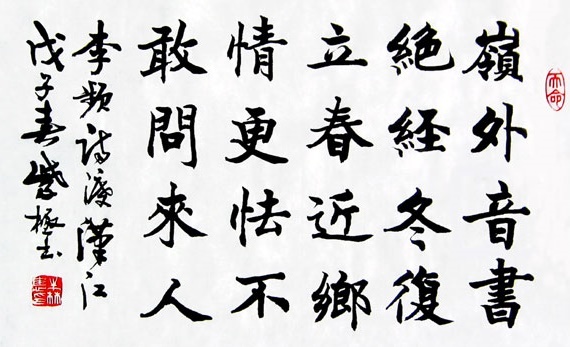 嶺外音書
絶経冬復
立春近鄉
情更怯不
敢問來人
李頻詩渡漢江
戊子春紫極書